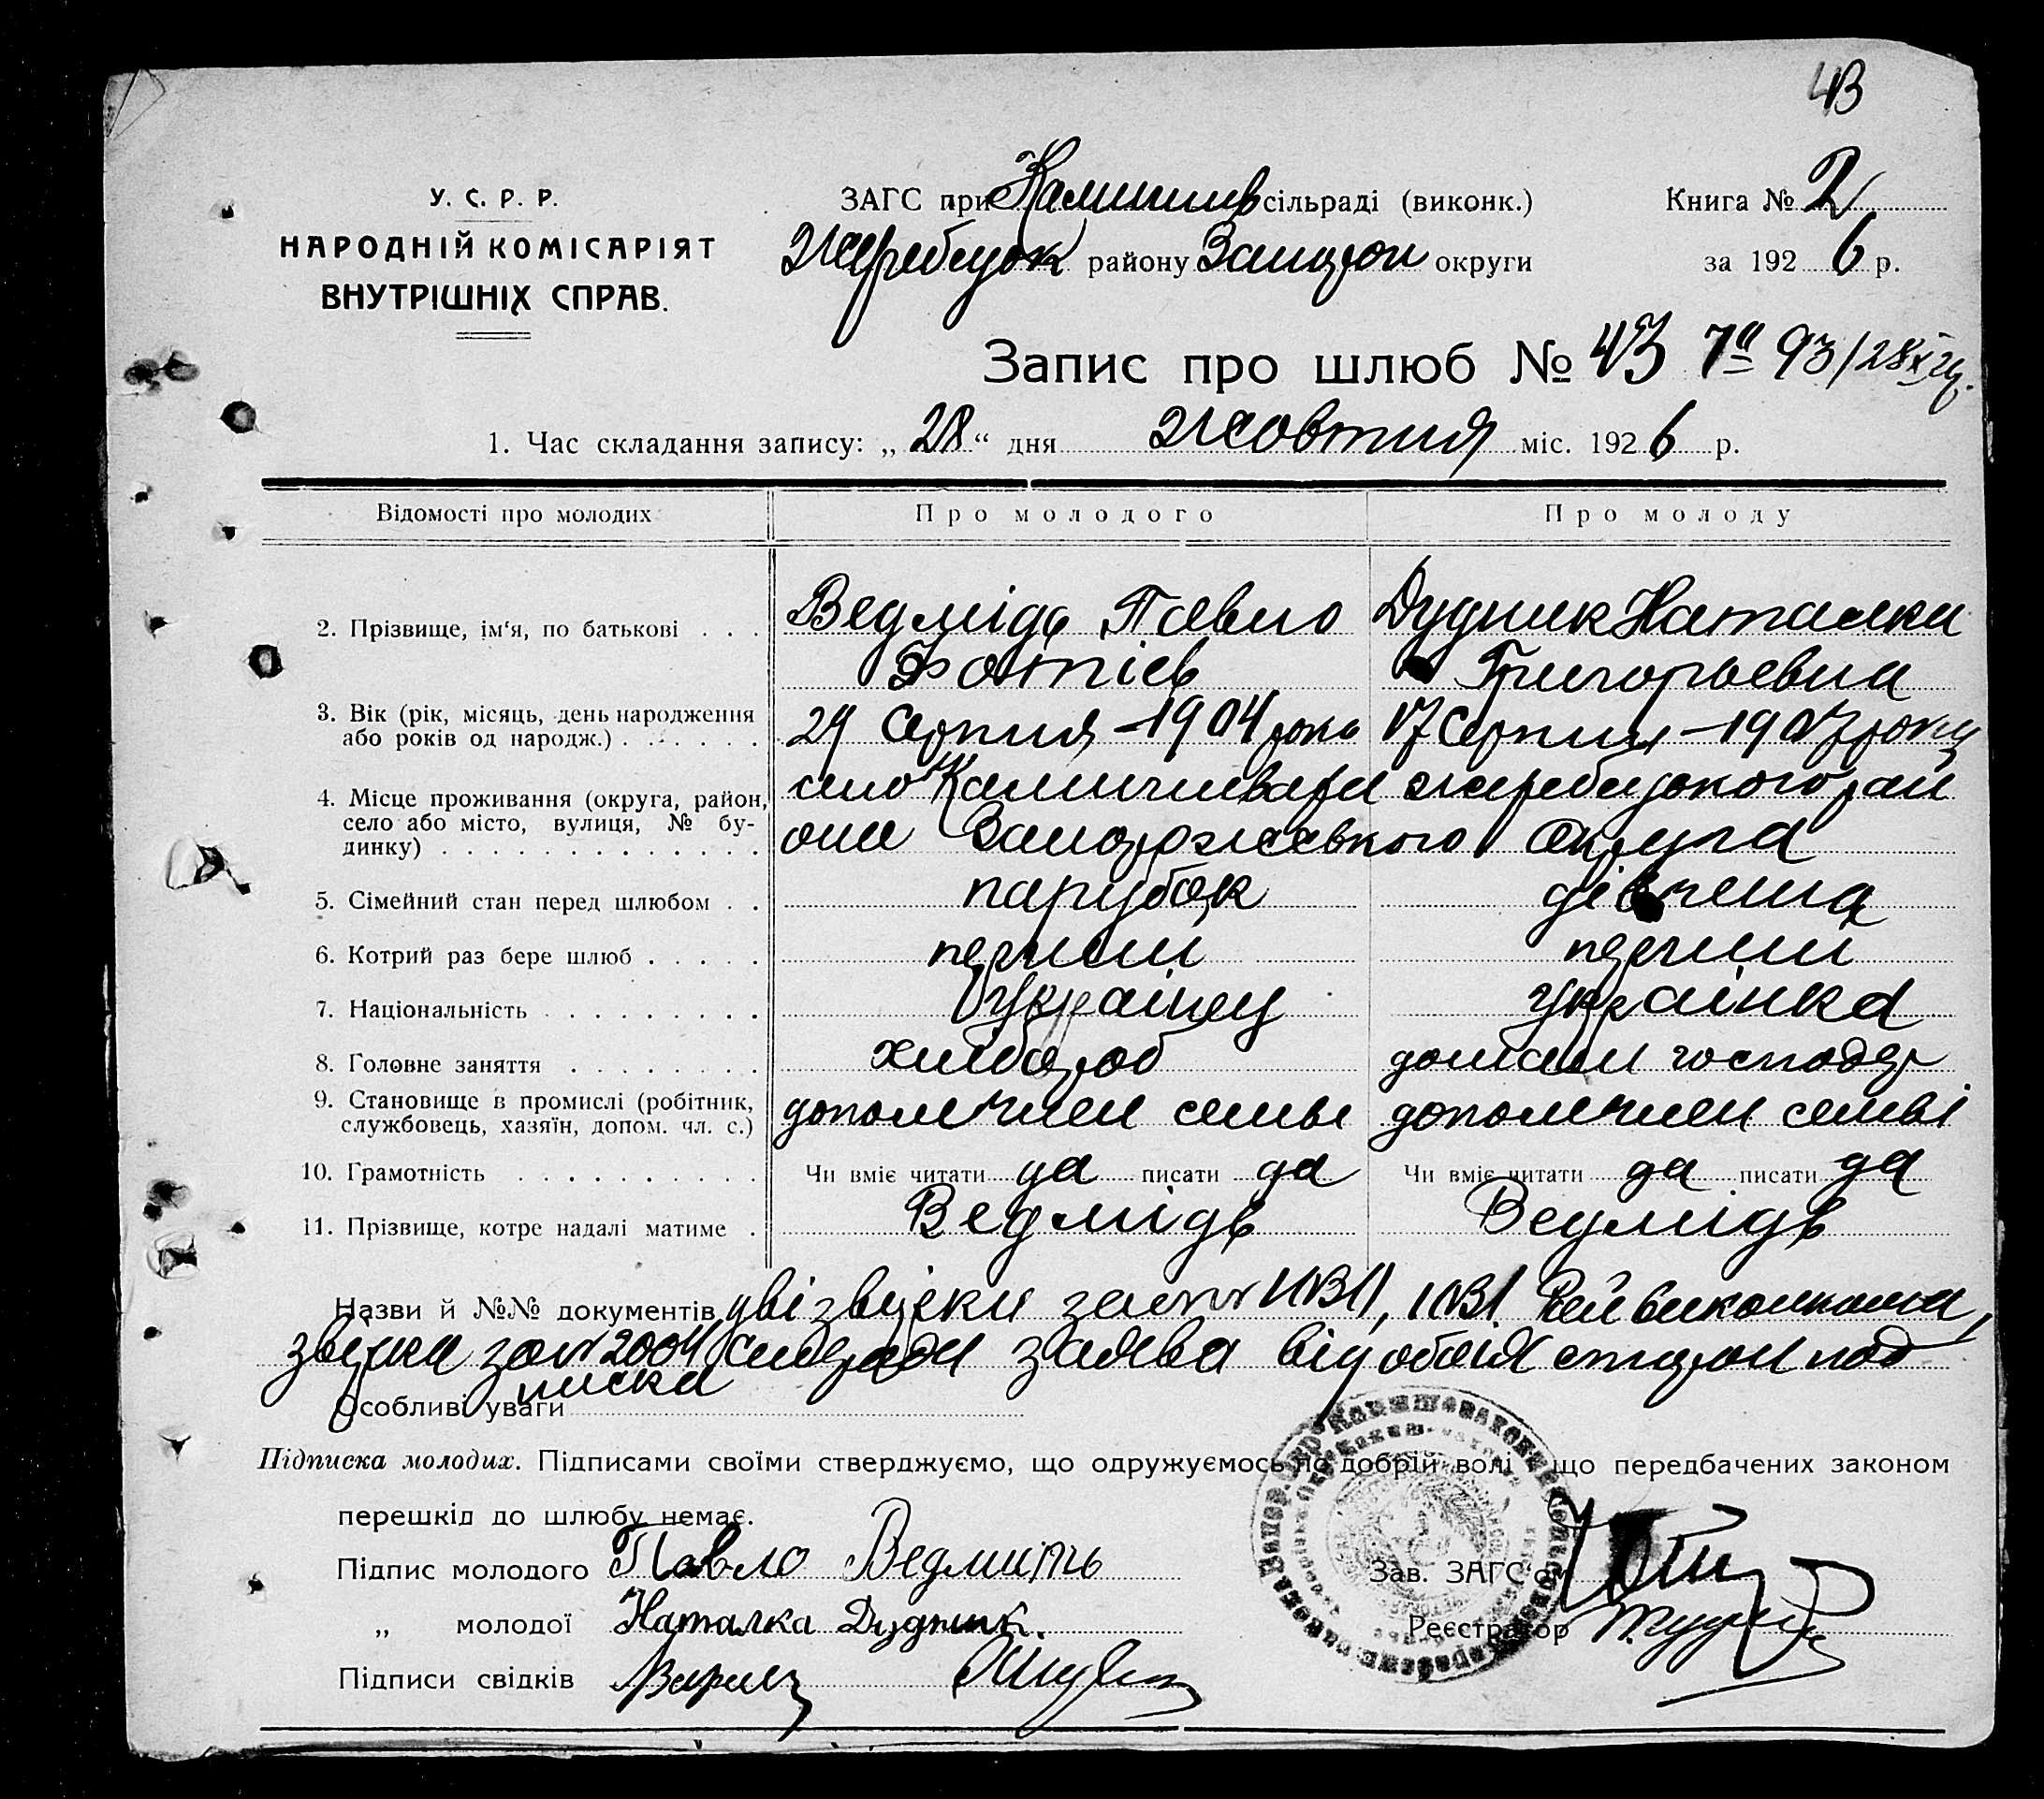 43
У. С. Р. Р.
НАРОДНІЙ КОМІСАРІЯТ
ВНУТРІШНІХ СПРАВ.
ЗАГС при сільраді (виконк.)
Жеребецьк району Запор округи
Книга № 2
за 1926 р.
Запис про шлюб № 43 7а 93/28
1. Час складання запису: „28“ дня Жовтня міс. 1926 р.
Відомості про молодих Про молодого Про молоду
2. Прізвище, ім'я, по батькові Ведмідь Павло Дудник Наталка
Фотієв Григорьевна
3. Вік (рік, місяць, день народження 29 Серпня - 1904 року 17 Серпня - 1907 року
або років од народж.)
4. Місце проживання (округа, район, село жеребецького рай
село або місто, вулиця, № бу- она Запорожськаго Округа
динку)
5. Сімейний стан перед шлюбом парубок дівчена
6. Котрий раз бере шлюб перший перший
7. Національність Українец українка
8. Головне заняття хлібороб домашн господар
9. Становище в промислі (робітник, допом член семьі допом член семьі
службовець, хазяїн, допом. чл. с.)
10. Грамотність Чи вміє читати да писати да Чи вміє читати да писати да
11. Прізвище, котре надалі матиме Ведмідь Ведмідь
Назви й №№ документів дві звідки за Райвиконкома,
звідка за № 2004 сільради заява від обоїх сторон под
писка
Особливі уваги
Підписка молодих. Підписами своїми стверджуємо, що одружуємось по добрій волі і що передбачених законом
перешкід до шлюбу немає.
Підпис молодого Павло Ведмить
„ молодої Наталка Дудник.
Підписи свідків
Зав. ЗАГС'ом
Реєстратор